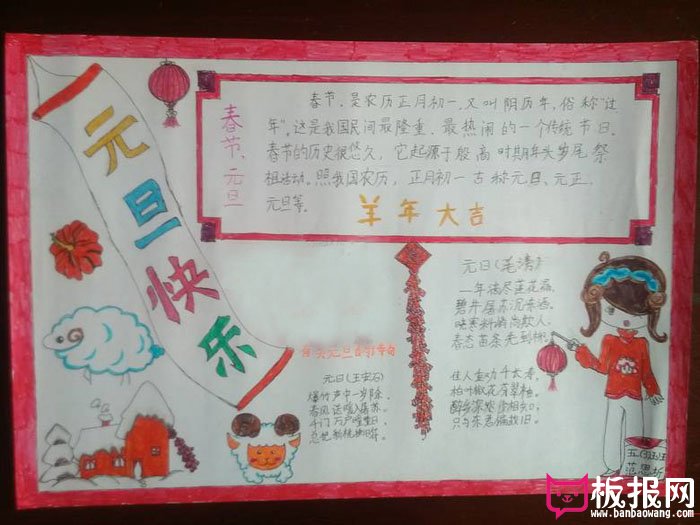 元旦快乐
春节、元旦
春节,是农历正月初一,又叫阴历年,俗称“过
年”。这是我国民间最隆重、最热闹的一个传统节日。
春节的历史很悠久,它起源于殷商时期年头岁尾祭
祖活动。照我国农历,正月初一古称元日、元正、
元旦等。
羊年大吉
有关元旦的
元日(王安石)
爆竹声中一岁除,
春风送暖入屠苏。
千门万户曈曈日,
总把新桃换旧符。
元日(毛滂)
一年滴尽莲花漏。
碧井屠苏沉冻酒。
晓寒料峭尚欺人,
春态苗条先到柳。
佳人重劝千长寿。
柏叶椒花芬翠袖。
醉乡深处少相知,
只与东君偏故旧。
五(
范思
板报网
www.banbaowang.com